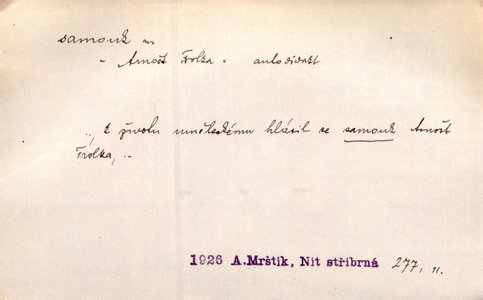 samouk m
- Arnošt Frolka - autodidakt
„k životu uměleckému hlásil se samouk Arnošt
Frolka, ..
1926 A.Mrštík, Nit stříbrná 277, n.